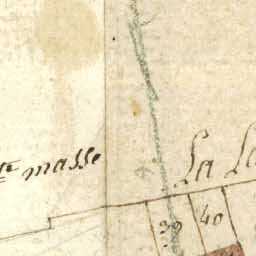 te masse
La
39
40